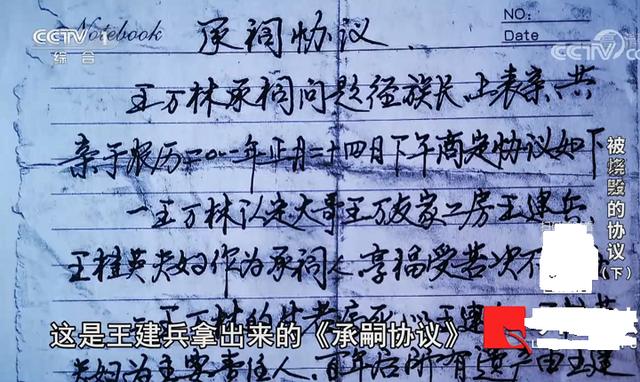 CCTV 1
综合
Notebook
NO:
Date
CCTV
承祠协议
王万林承祠问题经族民上表亲共
亲于农历二〇一一年正月二十四日下午商定协议如下
一王万林认定大哥王万友家二房王建兵、
王桂英夫妇作为承祠人.享福受苦次不
一王万林的
夫妇为主要责任人.百年后所有遗产由王建
被烧毁的协议(下)
这是王建兵拿出来的《承嗣协议》